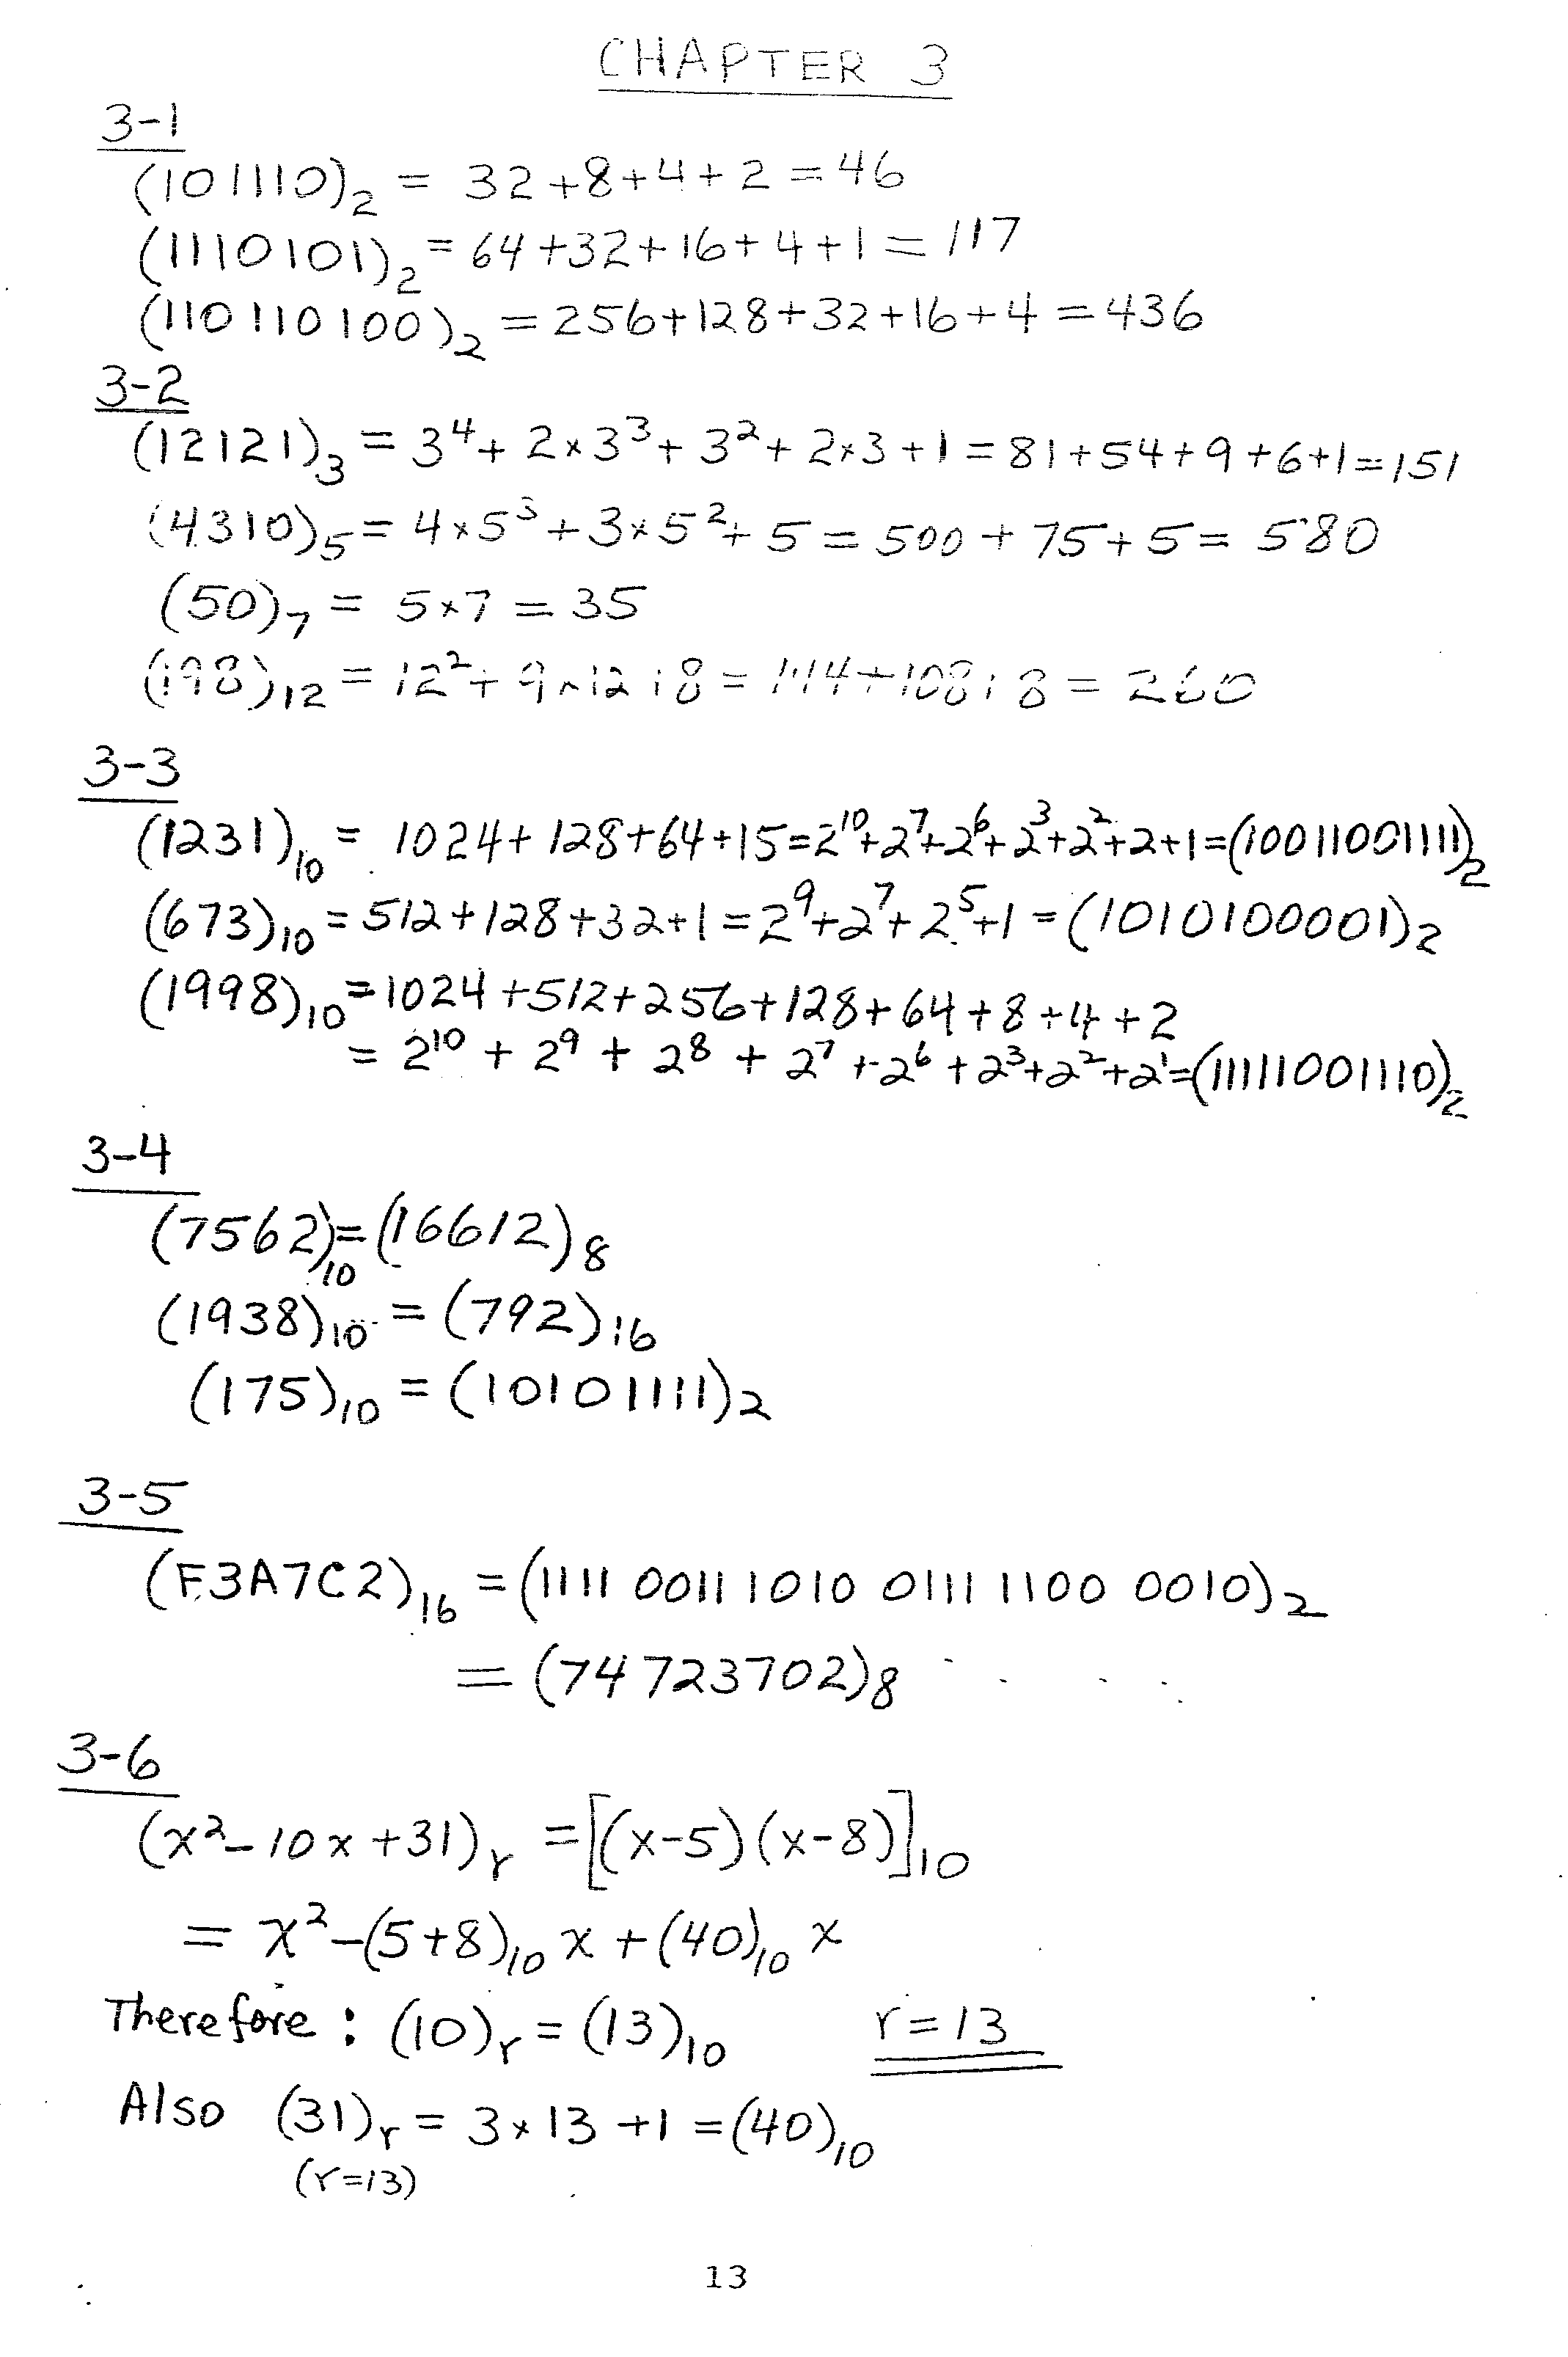 CHAPTER 3
3-1
(101110)₂ = 32+8+4+2 = 46
(1110101)₂ = 64+32+16+4+1 = 117
(110110100)₂ = 256+128+32+16+4 = 436
3-2
(12121)₃ = 3⁴+ 2×3³+ 3²+ 2×3+1 = 81+54+9+6+1 = 151
(4310)₅ = 4×5³+3×5²+5 = 500+75+5 = 580
(50)₇ = 5×7 = 35
(198)₁₂ = 12²+ 9×12+8 = 144+108+8 = 260
3-3
(1231)₁₀ = 1024+128+64+15=2¹⁰+2⁷+2⁶+2³+2²+2+1=(10011001111)₂
(673)₁₀ = 512+128+32+1 = 2⁹+2⁷+2⁵+1 = (1010100001)₂
(1998)₁₀ = 1024+512+256+128+64+8+4+2
= 2¹⁰ + 2⁹ + 2⁸ + 2⁷ +2⁶ +2³+2²+2¹=(11111001110)₂
3-4
(7562)₁₀=(16612)₈
(1938)₁₀ = (792)₁₆
(175)₁₀ = (10101111)₂
3-5
(F3A7C2)₁₆ = (1111 0011 1010 0111 1100 0010)₂
= (74 723702)₈
3-6
(x²-10x+31)ᵣ = [(x-5)(x-8)]₁₀
= x²-(5+8)₁₀ x + (40)₁₀ x
Therefore : (10)ᵣ = (13)₁₀ r = 13
Also (31)ᵣ = 3×13 +1 = (40)₁₀
(r=13)
13